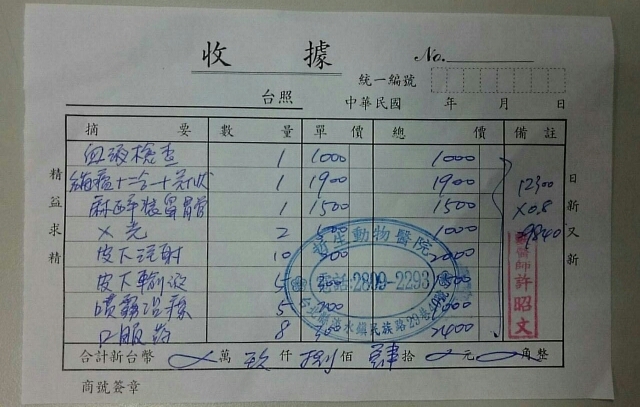 收 據 No.
統一編號
台照 中華民國 年 月 日
摘 要 數 量 單 價 總 價 備 註
血液檢查 1 1000 1000
貓瘟 1 1900 1900 12300
1 1500 1500 X0.8
X光 2 500 1000 9840
皮下注射 10 200 2000
皮下輸液 5 300 1500
噴霧治療 5 200 1000
口服藥 8 300 2400
哲生動物醫院
電話:2809-2293
淡水鎮民族路29
醫師許昭文
精益求精
日新又新
合計新台幣 萬 玖 仟 捌 佰 肆 拾 元 角 整
商號簽章